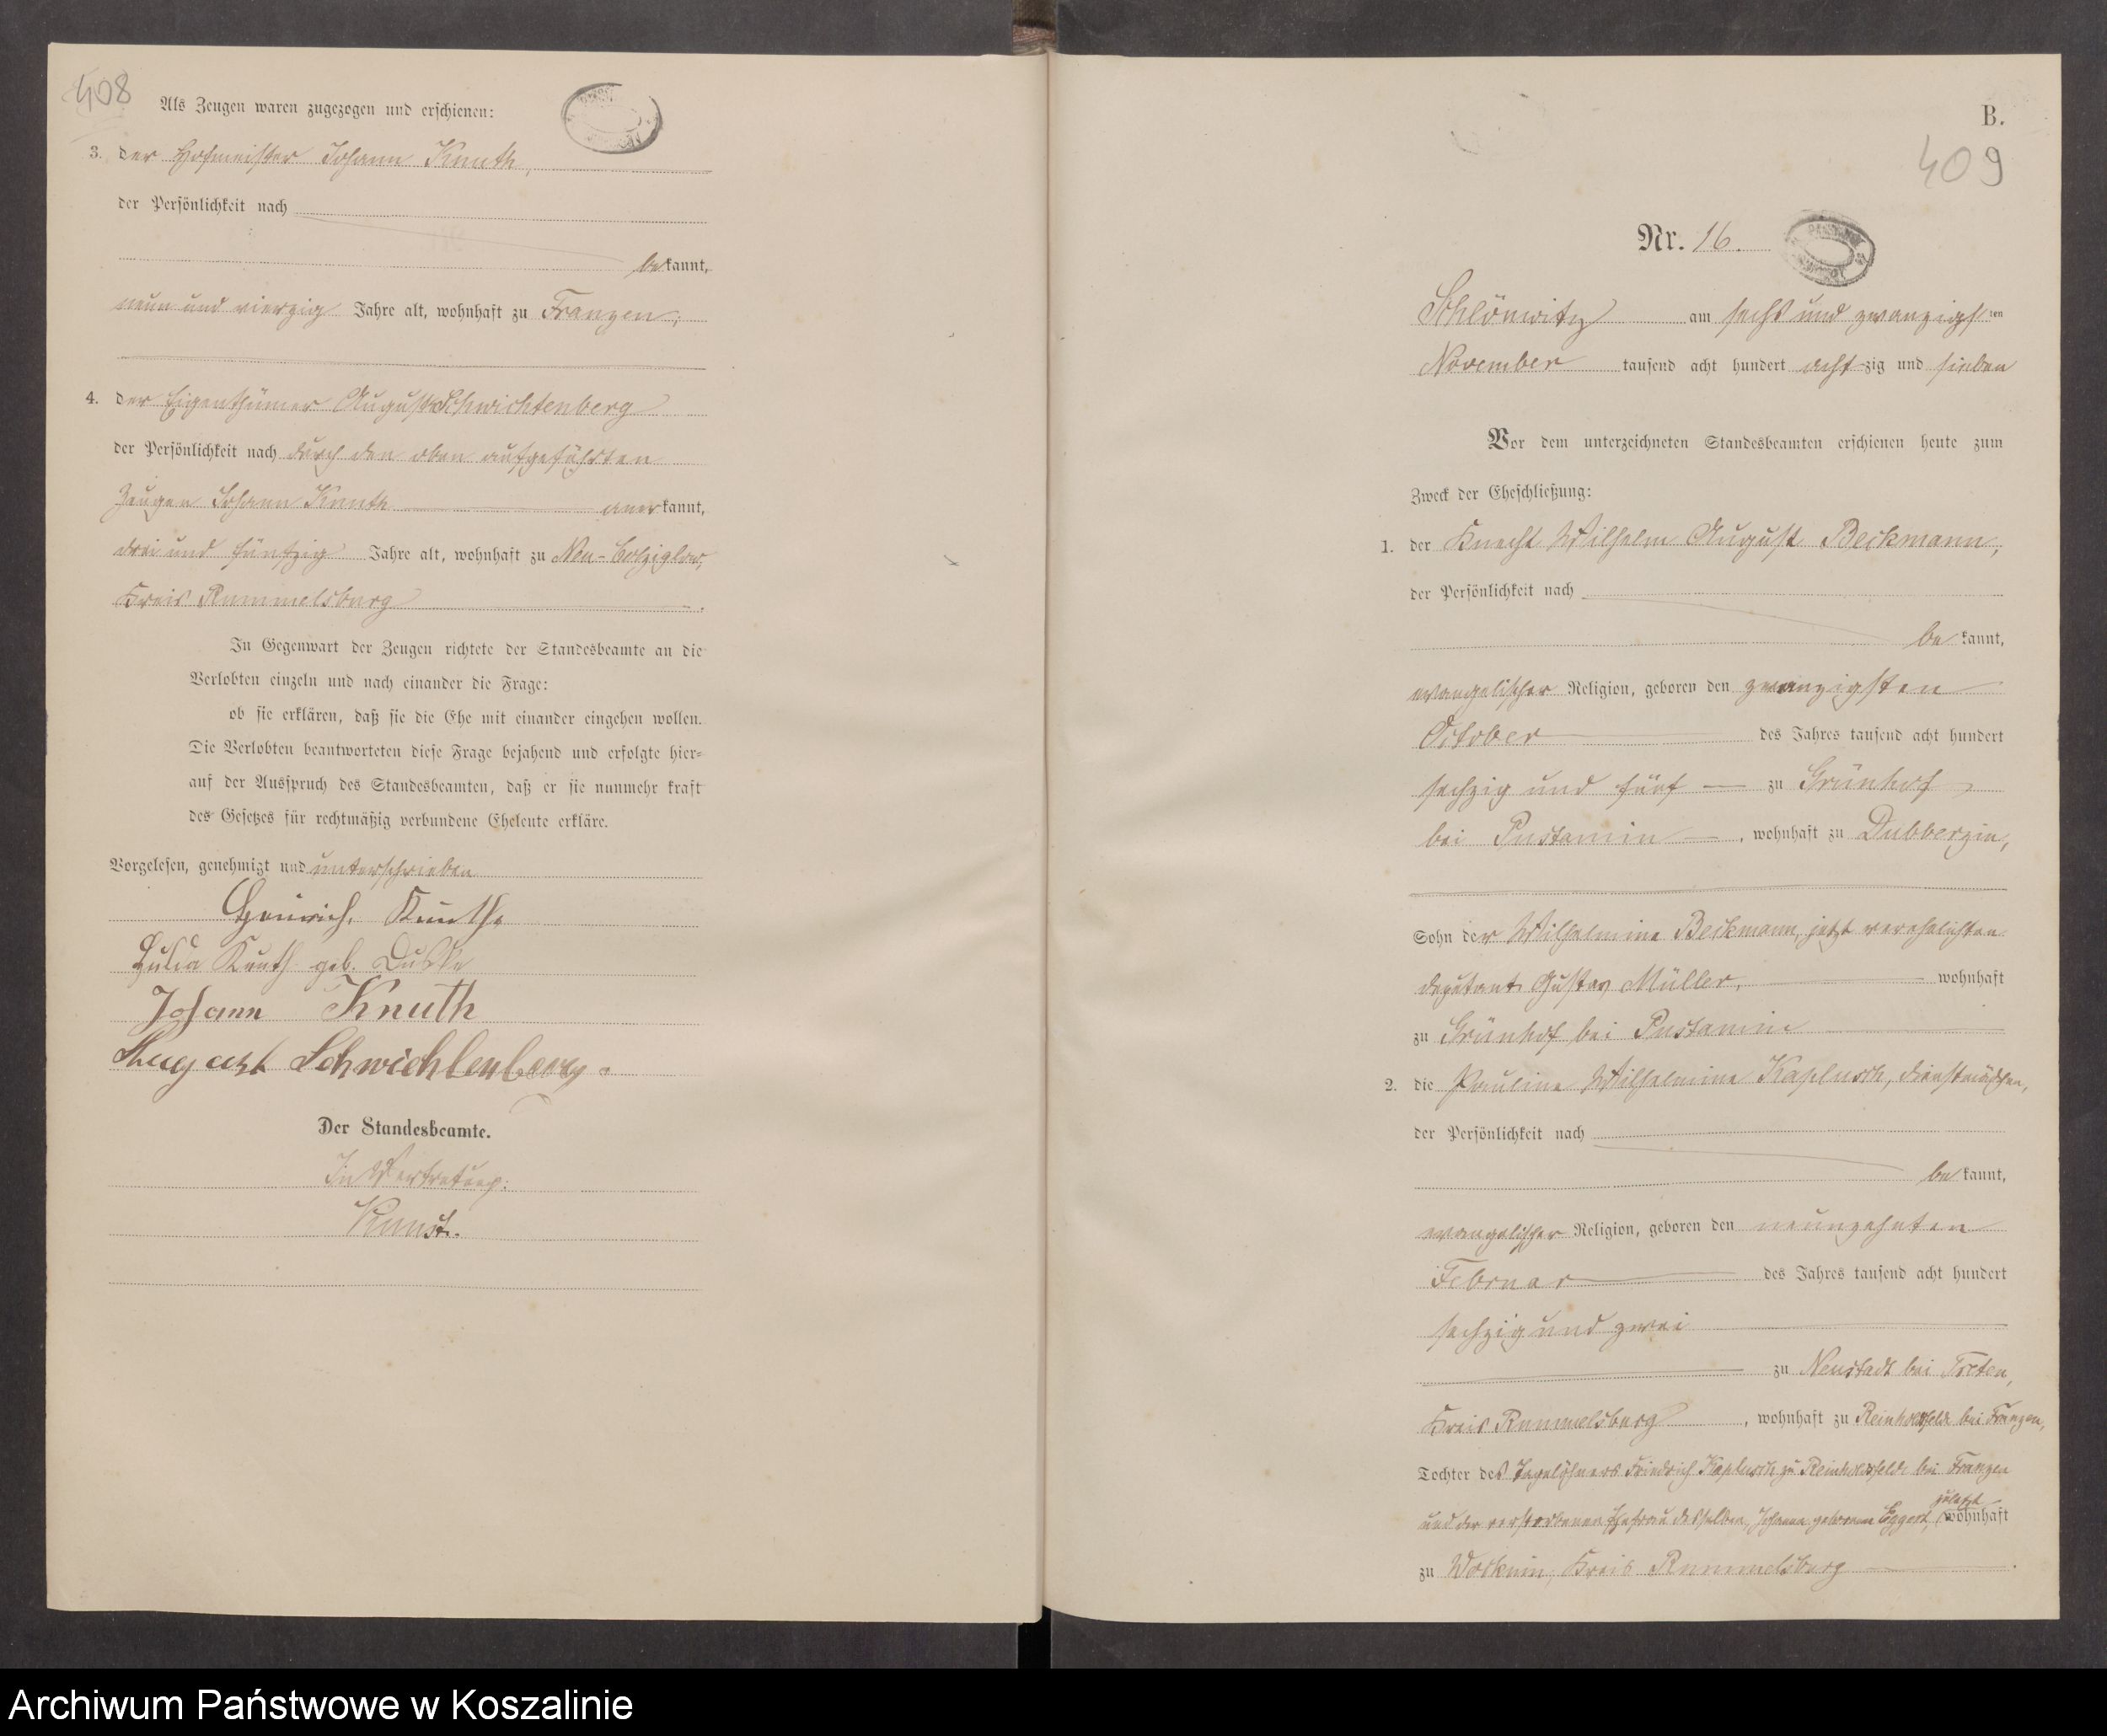 408
Als Zeugen waren zugezogen und erschienen:
3. der Hofmeister Johann Knuth,
der Persönlichkeit nach
bekannt,
neun und vierzig Jahre alt, wohnhaft zu Franzen;
4. der Eigenthümer August Schwichtenberg
der Persönlichkeit nach durch den oben aufgeführten
Zeugen Johann Knuth anerkannt,
drei und fünfzig Jahre alt, wohnhaft zu Neu-Colziglow,
Kreis Rummelsburg.
In Gegenwart der Zeugen richtete der Standesbeamte an die
Verlobten einzeln und nach einander die Frage:
ob sie erklären, daß sie die Ehe mit einander eingehen wollen.
Die Verlobten beantworteten diese Frage bejahend und erfolgte hier=
auf der Ausspruch des Standesbeamten, daß er sie nunmehr kraft
des Gesetzes für rechtmäßig verbundene Eheleute erkläre.
Vorgelesen, genehmigt und unterschrieben
Heinrich Knuth
Knuth geb.
Johann Knuth
August Schwichtenberg.
Der Standesbeamte.
In Vertretung:
B.
409
Nr. 16.
Schlönwitz am sechs und zwanzigsten
November tausend acht hundert achtzig und sieben
Vor dem unterzeichneten Standesbeamten erschienen heute zum
Zweck der Eheschließung:
1. der Knecht Wilhelm August Beckmann,
der Persönlichkeit nach
bekannt,
evangelischer Religion, geboren den zwanzigsten
October des Jahres tausend acht hundert
sechzig und fünf zu Grünhof
bei Pustamin, wohnhaft zu Dubberzin,
Sohn der Wilhelmine Beckmann, jetzt verehelichten
Deputant Gustav Müller, wohnhaft
zu Grünhof bei Pustamin
2. die Pauline Wilhelmine Kaplusch, Dienstmädchen,
der Persönlichkeit nach
bekannt,
evangelischer Religion, geboren den neunzehnten
Februar des Jahres tausend acht hundert
sechzig und zwei
zu Neustadt bei Treten,
Kreis Rummelsburg, wohnhaft zu Reinholdsfelde bei Franzen,
Tochter des Tagelöhners Friedrich Kaplusch zu Reinholdsfelde bei Franzen
und der verstorbenen Ehefrau desselben, Johanna geborenen Eggert, zuletzt wohnhaft
zu Wocknin, Kreis Rummelsburg.
Archiwum Państwowe w Koszalinie